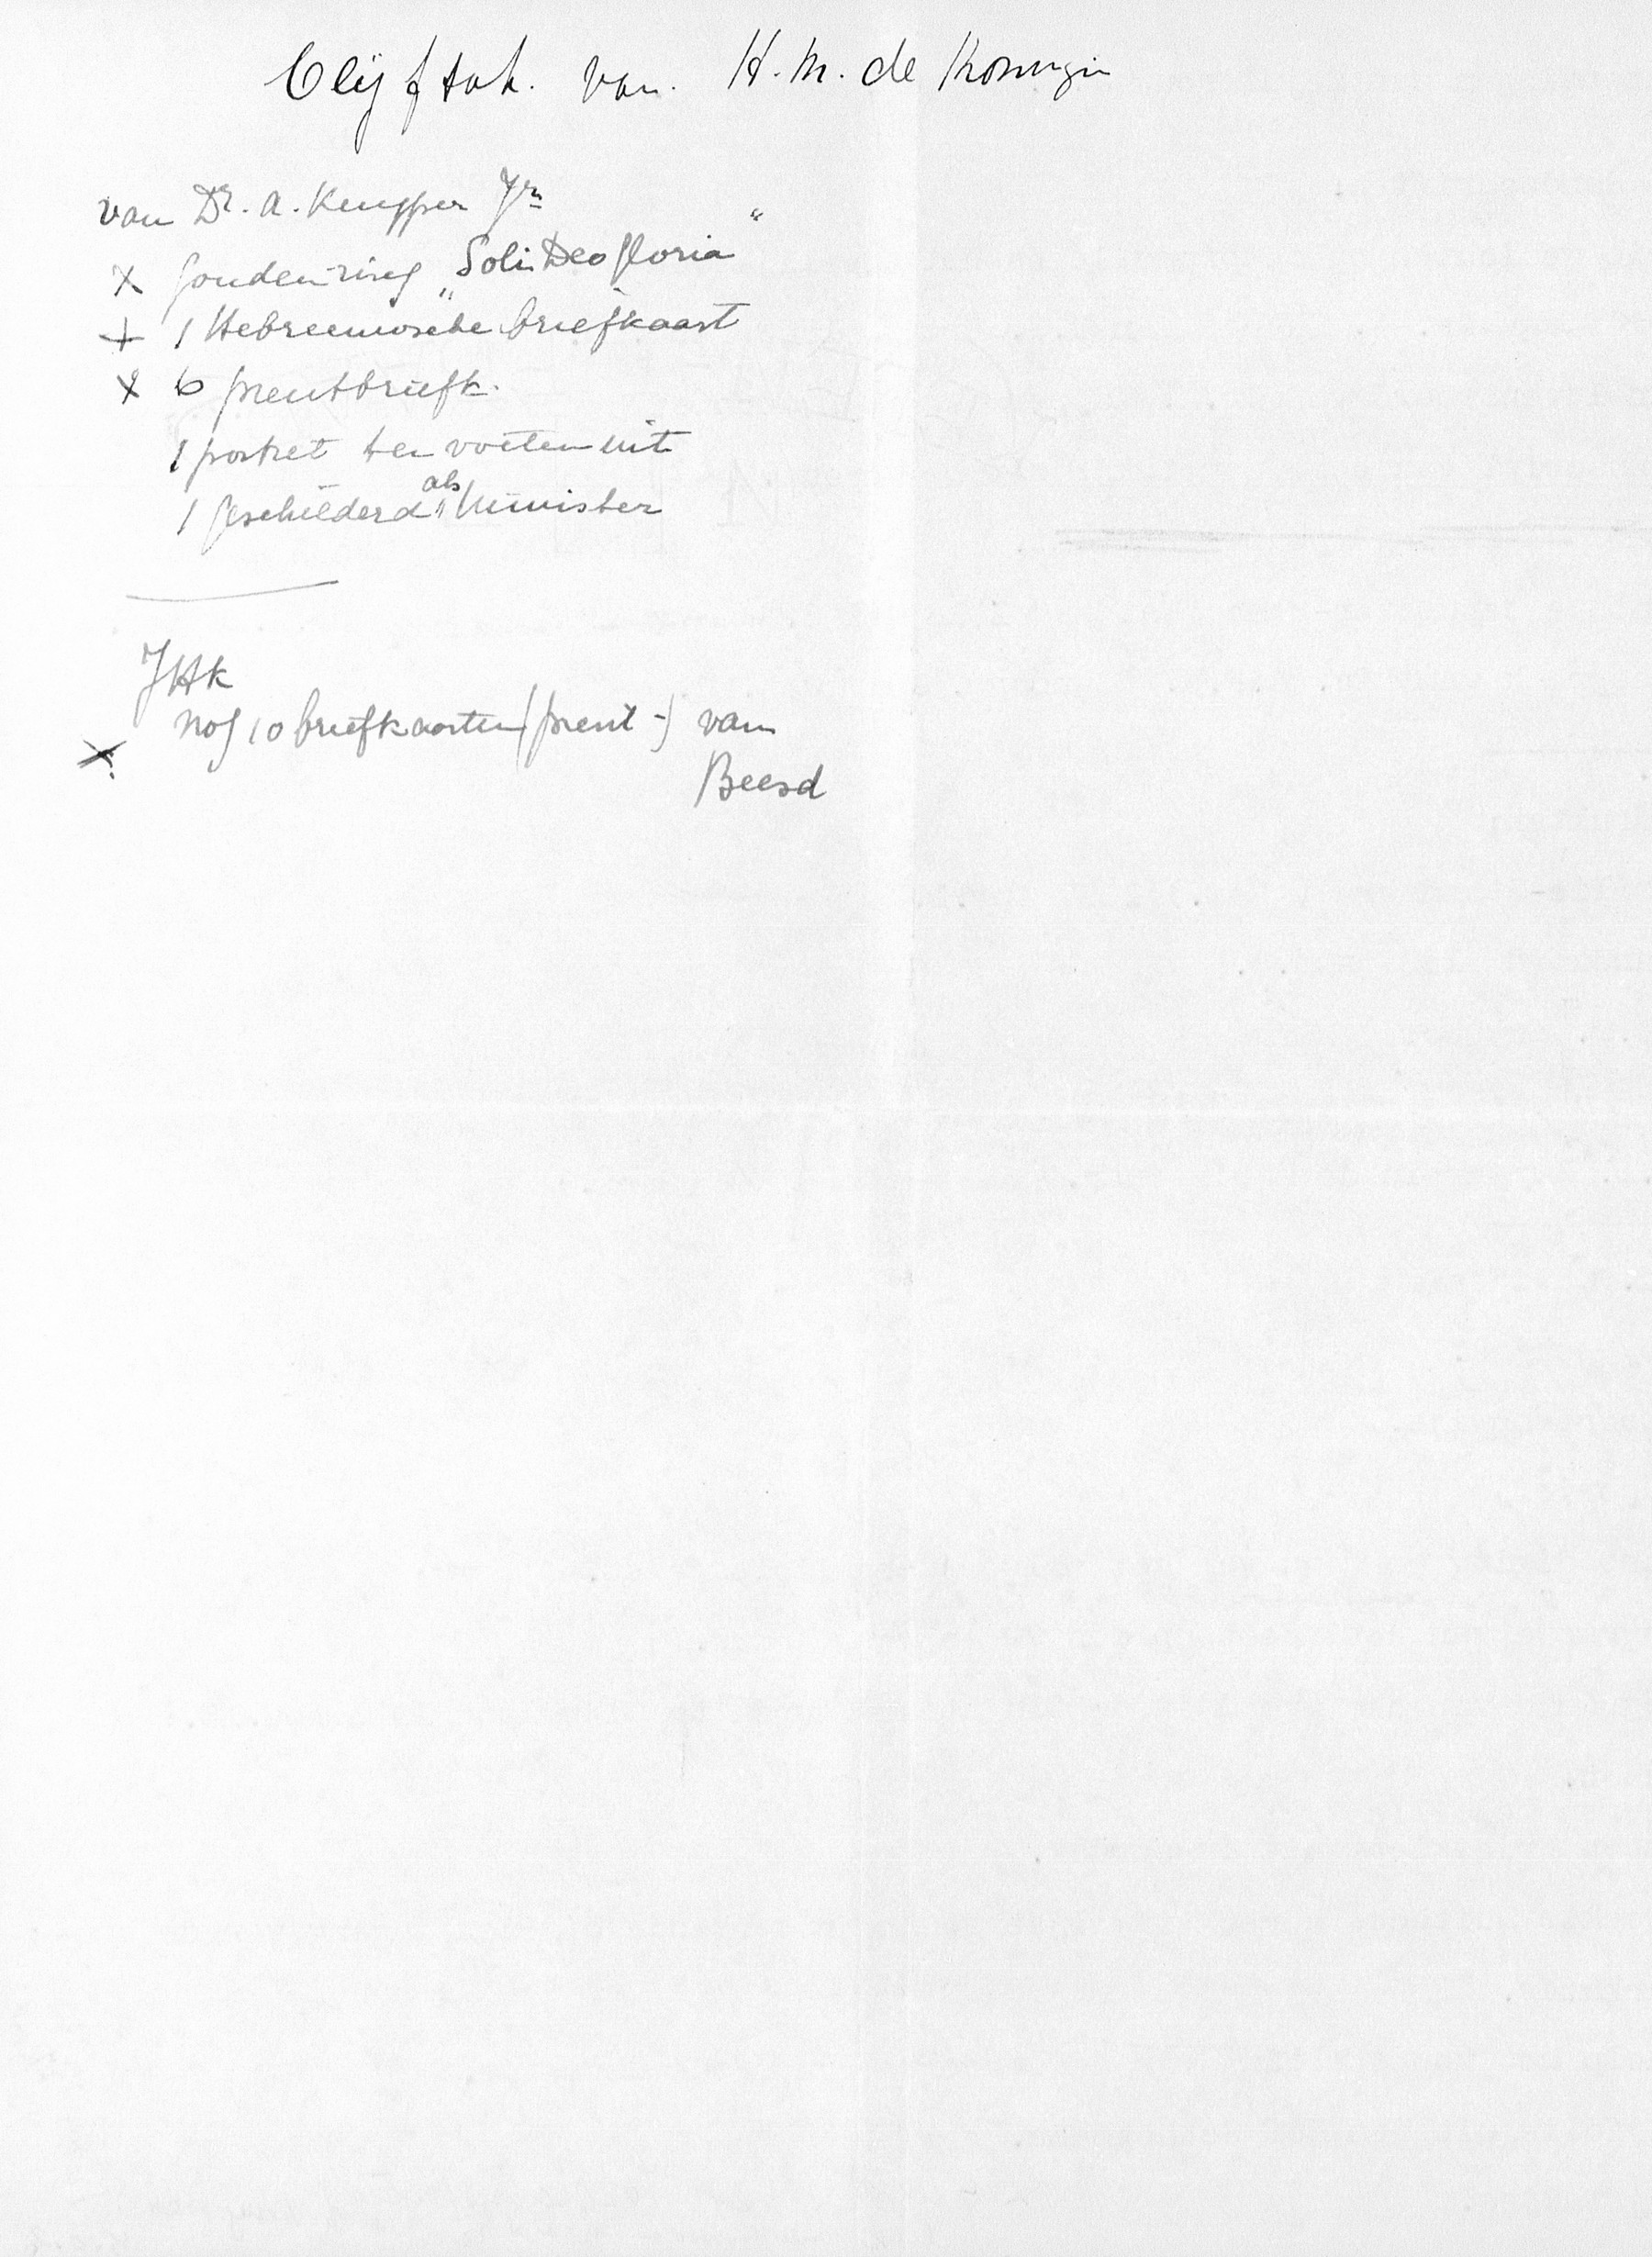 Olijftak. van. H.M. de Koningin
van Dr. A. Kuyper Jr
x Gouden ring „Soli Deo Gloria"
+ 1 Hebreeuwsche briefkaart
x 6 prentbriefk.
1 portret ten voeten uit
1 geschilderd als Minister
JHK
nog 10 briefkaarten (prent-) van
x Beesd